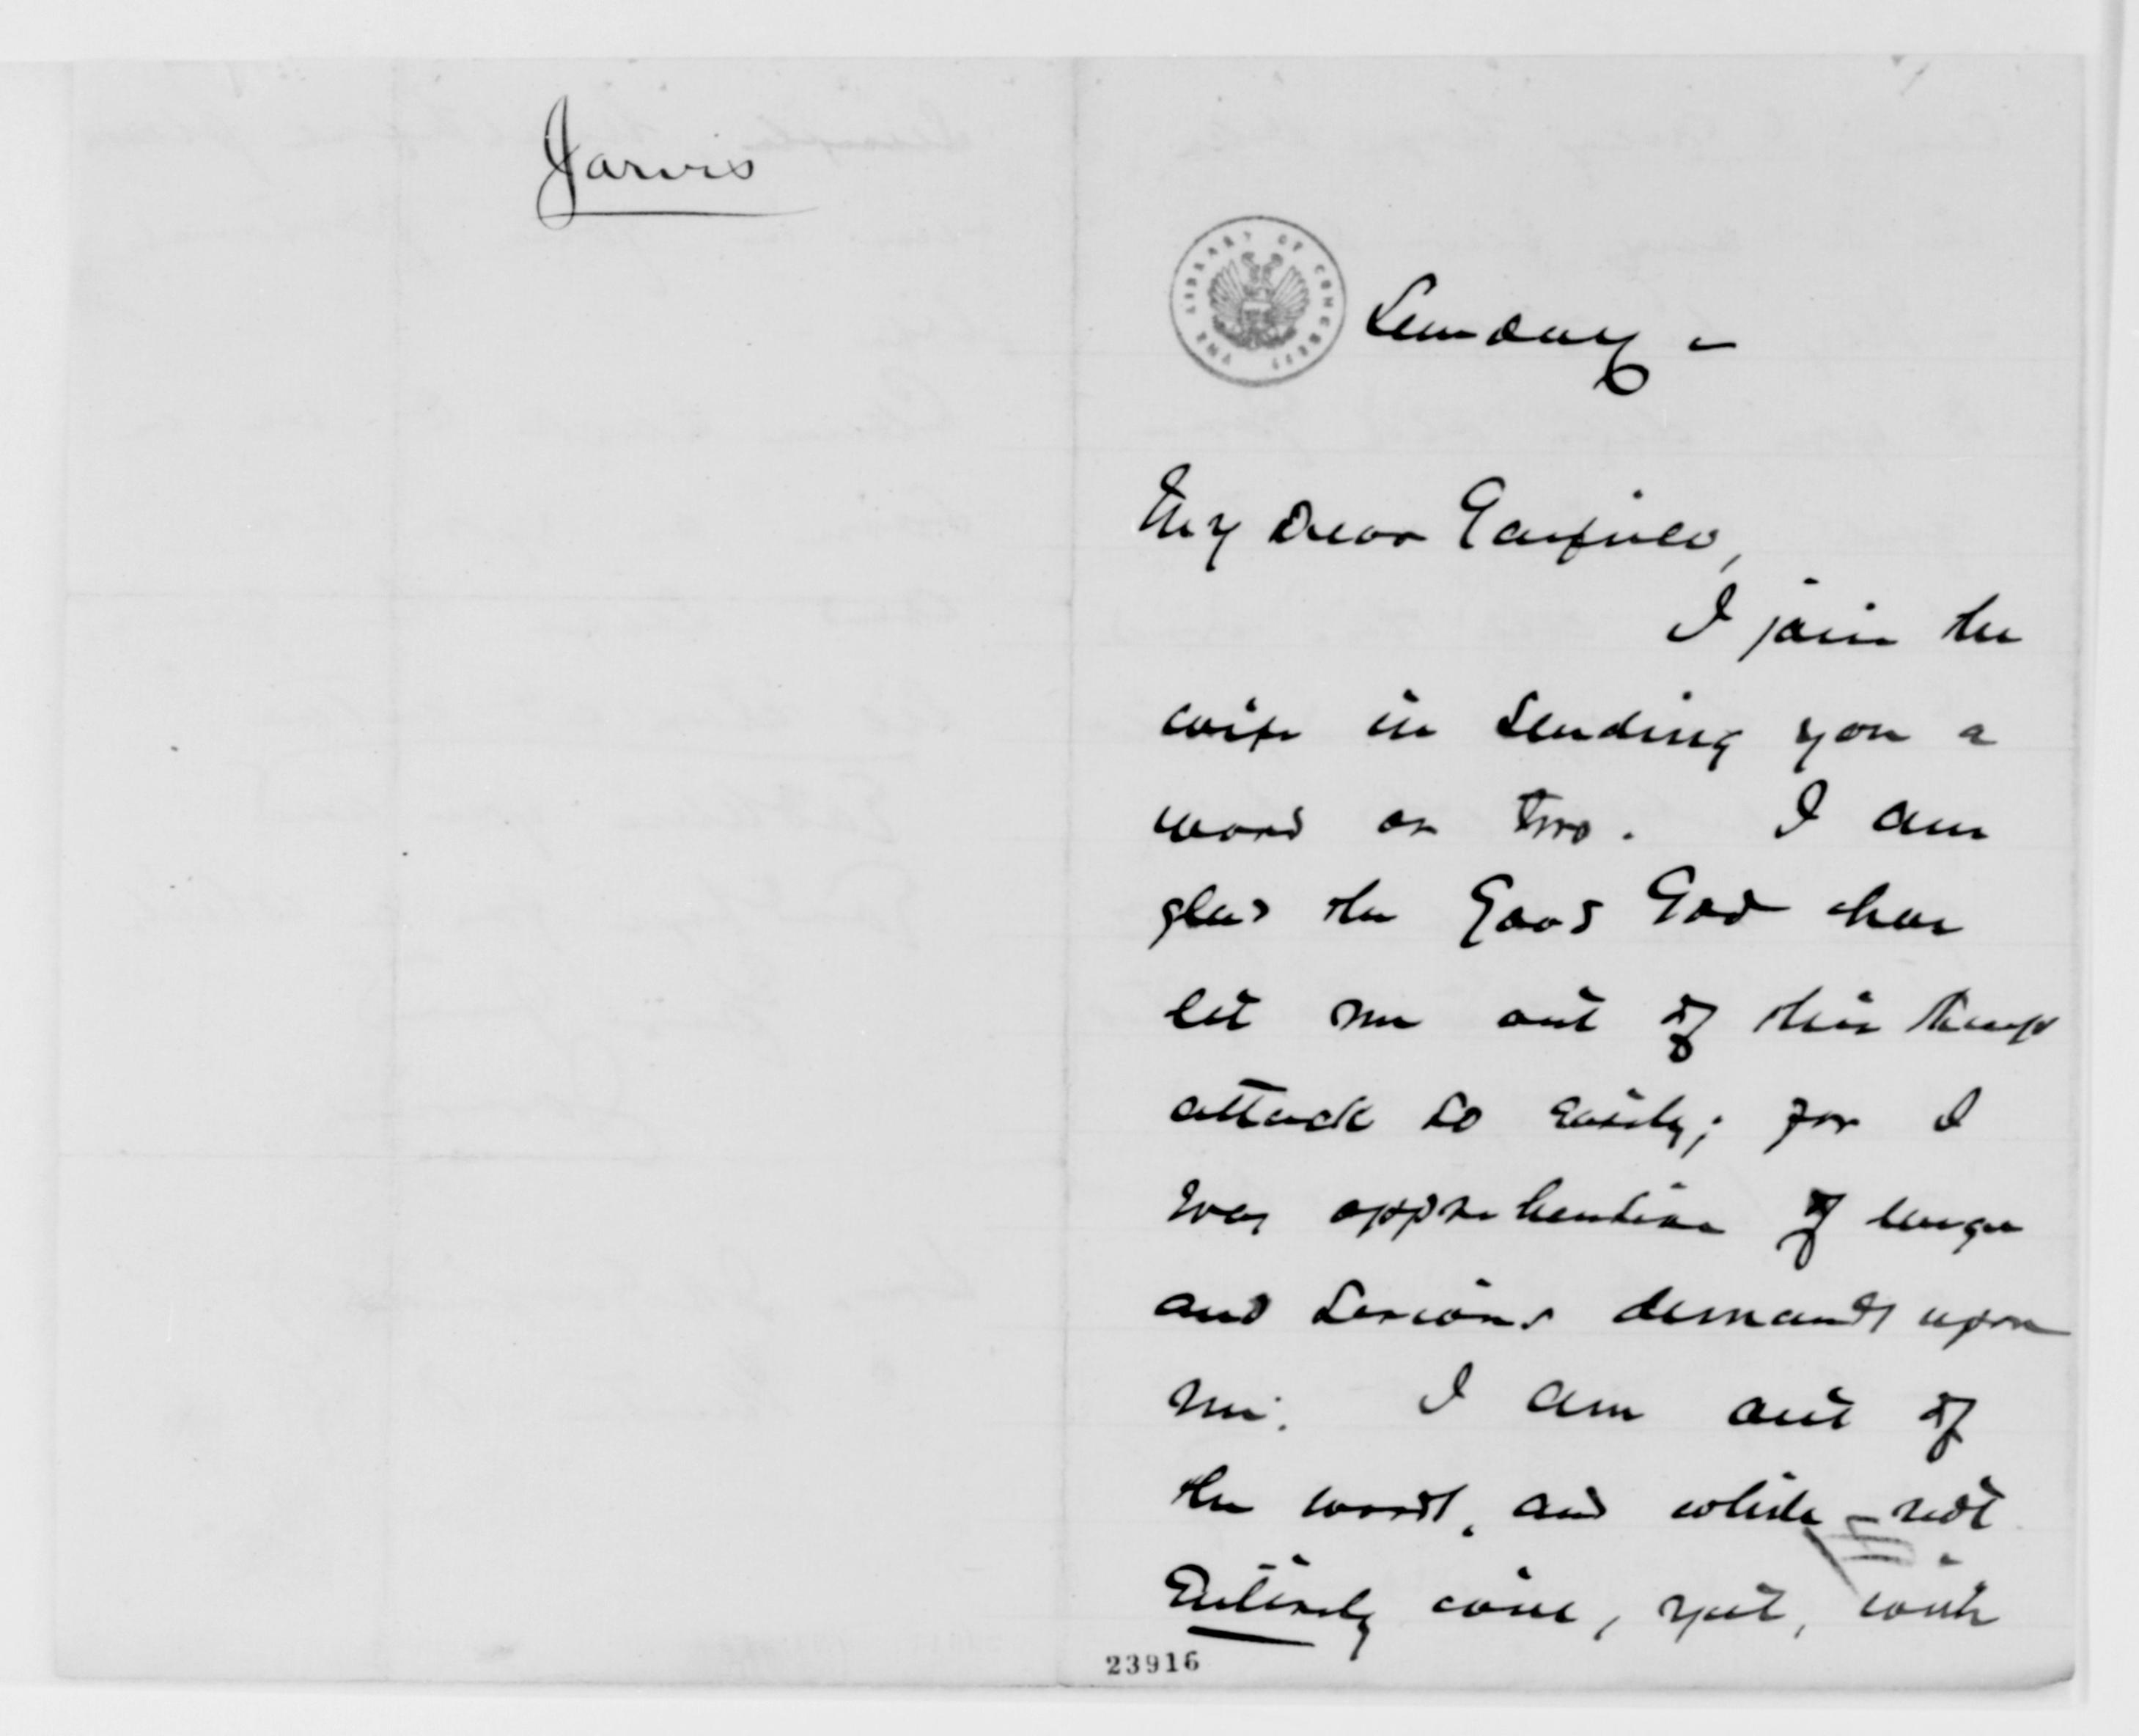 Jarvis
THE LIBRARY OF CONGRESS
Sunday -
My Dear Garfield,
I join the
wife in sending you a
word or two. I am
glad the Good God has
let me out of this sharp
attack so easily; for I
was apprehensive of longer
and serious demands upon
me. I am out of
the worst, and while not
Entirely well, yet, with
23916